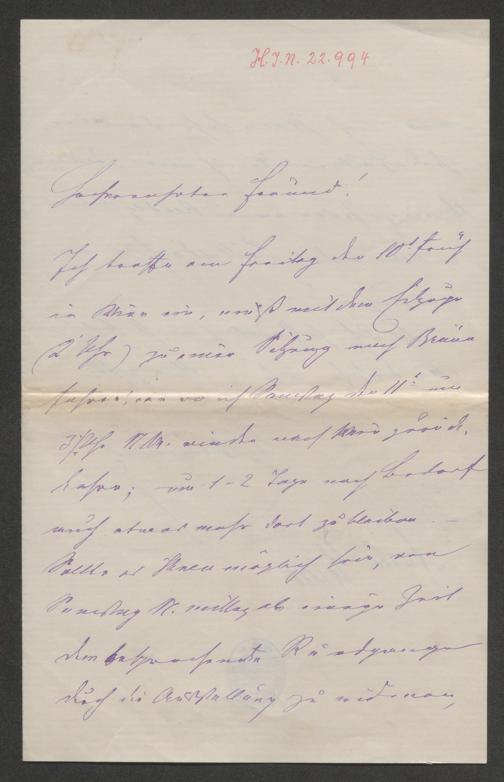 H.I.N. 22.994
Hochverehrter Freund!
Ich treffe am Freitag den 10t früh
in Wien ein, muß mit dem Eilzuge
(2 Uhr) zu einer Sitzung nach Brünn
fahren, von wo ich Samstag den 11t um
Uhr N.M. wieder nach Wien zurück
kehre; um 1-2 Tage nach Bedarf
auch etwas mehr dort zu bleiben.
Sollte es Ihnen möglich sein, von
Samstag N. mittag ab einige Zeit
dem besprochenen Rundgange
durch die Ausstellung zu widmen,